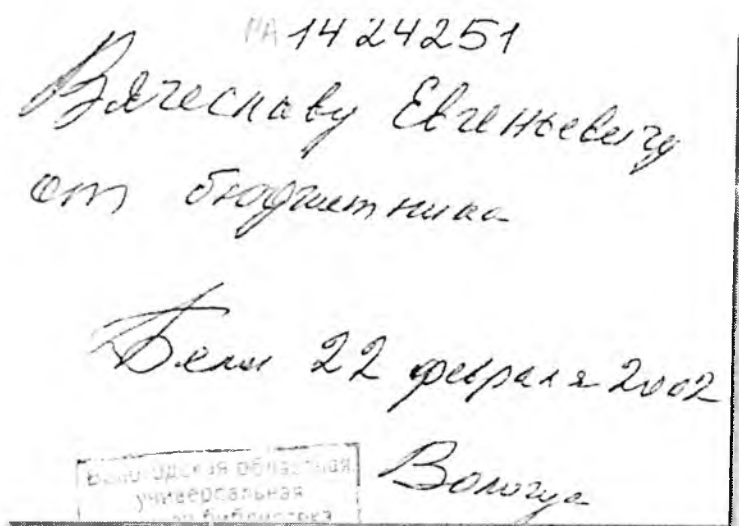 1424251
Вячеславу Евгеньевичу
от бюджетника
22 февраля 2002
Вологда
Вологодская областная
универсальная
библиотека